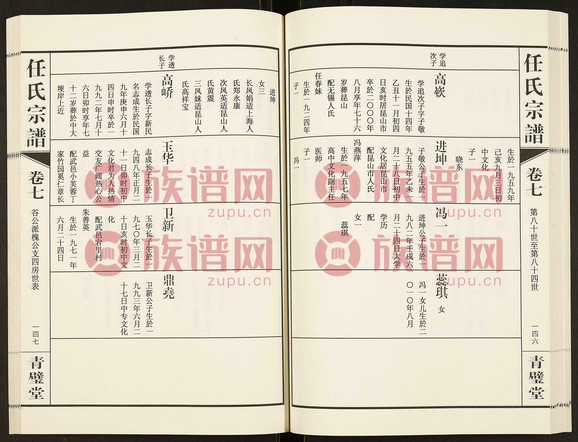 任氏宗譜
卷七
第八十世至第八十四世
一四六
青璧堂
学追
次子
高嵚
学追次子字子敬
生於民国十四年
乙丑十一月初四
日亥时居昆山市
卒於二〇〇〇年
八月享年七十六
岁葬昆山
配无锡人氏
任春妹
生於一九二四年
子一
进坤
子敬公子生於一
九五五年乙未
月二十八日初中
居昆山市
配昆山市人氏
冯燕萍
生於一九五七年
高中文化副主任
医师
子一
冯一
晓东
生於一九五九年
己亥九月三日
中文化
子一
冯一
进坤公子生於一
九八二年壬戌六
月二十四日大学
学历
配
女一
蕊琪
蕊琪
女
冯一女儿生於二
〇一〇年八月
女三
进坤
长风娟适上海人
氏郑永康
次风英适昆山人
氏黄震
三风妹适昆山人
氏高祥宝
学透
长子
高峤
学透长子字新民
名志成生於民国
九年庚申六月十
四日申时卒於一
九九二年七月十
六日卯时享年七
十二岁葬於中大
埂岸上近
玉华
志成长子生於一
九四八年正月二
十一日卯时初中
文化为人热情
交友广阔热心公
益
配武邑小芙蓉丁
家竹园奚仁章长
卫新
玉华长子生於一
九七〇年三月二
十日亥时初中文
化
配武邑宕里村
朱善英
生於一九七一年
六月二十四日
鼎堯
卫新公子生於一
九九三年六月二
十七日中专文化
任氏宗譜
卷七
谷公派槐公支四房世表
一四七
青璧堂
族谱网
zupu.cn
族谱网
zupu.cn
族谱网
zupu.cn
族谱网
zupu.cn